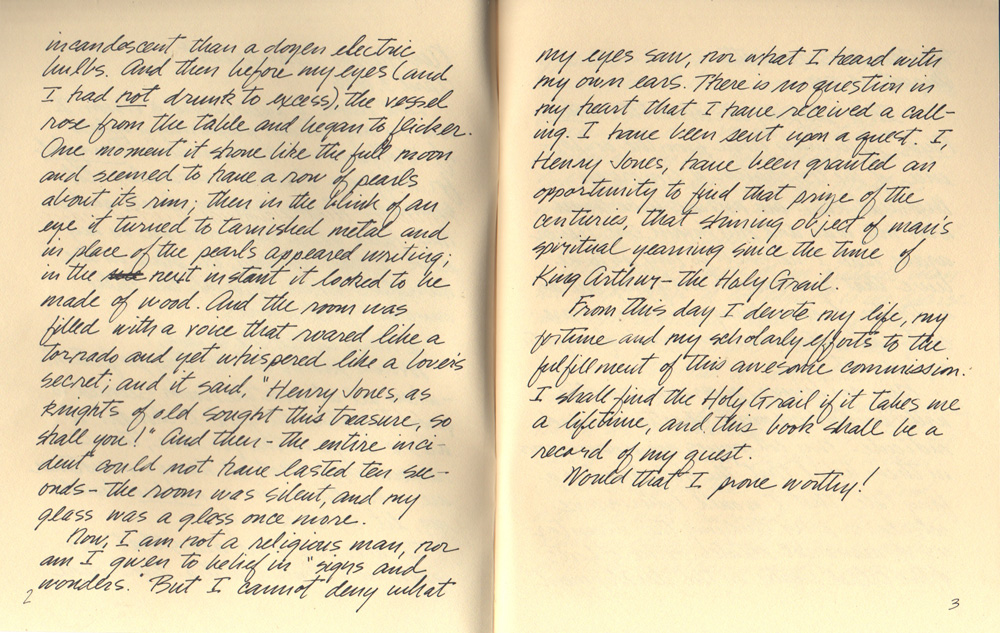 incandescent than a dozen electric
bulbs. And then before my eyes (and
I had not drunk to excess), the vessel
rose from the table and began to flicker.
One moment it shone like the full moon
and seemed to have a row of pearls
about its rim; then in the blink of an
eye it turned to tarnished metal and
in place of the pearls appeared writing;
in the next instant it looked to be
made of wood. And the room was
filled with a voice that roared like a
tornado and yet whispered like a lover's
secret; and it said, "Henry Jones, as
knights of old sought this treasure, so
shall you!" And then - the entire inci-
dent could not have lasted ten sec-
onds - the room was silent, and my
glass was a glass once more.
Now, I am not a religious man, nor
am I given to belief in "signs and
wonders." But I cannot deny what
2
my eyes saw, nor what I heard with
my own ears. There is no question in
my heart that I have received a call-
ing. I have been sent upon a quest. I,
Henry Jones, have been granted an
opportunity to find that prize of the
centuries, that shining object of man's
spiritual yearning since the time of
King Arthur - the Holy Grail.
From this day I devote my life, my
fortune and my scholarly efforts to the
fulfillment of this awesome commission.
I shall find the Holy Grail if it takes me
a lifetime, and this book shall be a
record of my quest.
Would that I prove worthy!
3